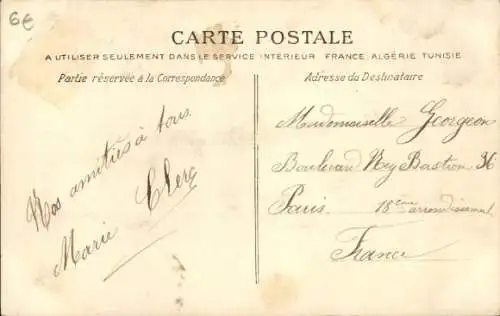 6€
CARTE POSTALE
A UTILISER SEULEMENT DANS LE SERVICE INTÉRIEUR FRANCE, ALGÉRIE TUNISIE
Partie réservée à la Correspondance
Adresse du Destinataire
Nos amitiés à tous
Marie Clerc
Mademoiselle Georgeon
Boulevard Ney Bastion 36
Paris. 18ème arrondissement
France